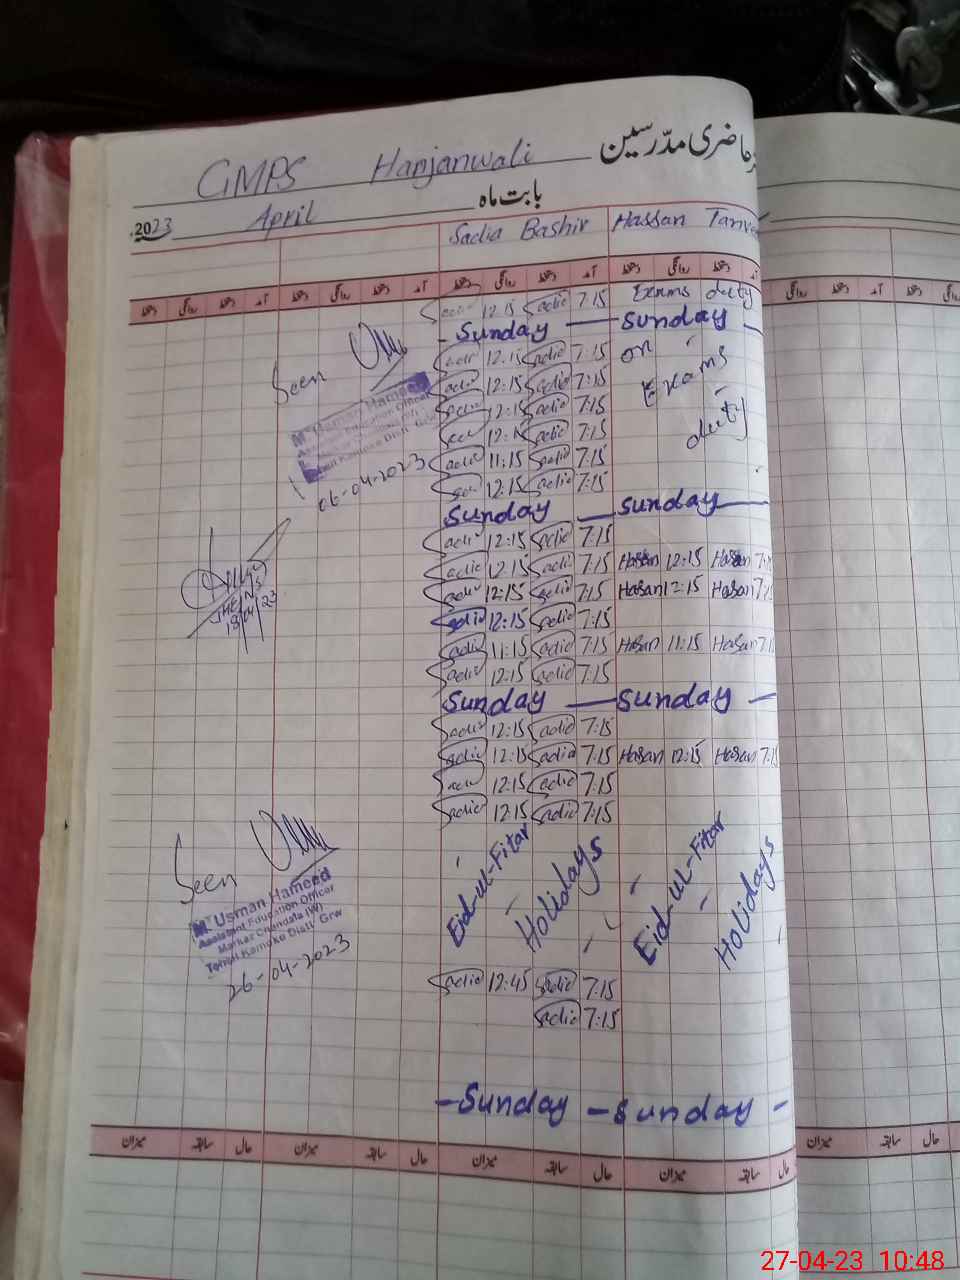 حاضری مدرسین
GMPS Hanjanwali
بابت ماہ
2023 April
Sadia Bashir Hassan
دستخط روانگی دستخط آمد دستخط روانگی دستخط آمد دستخط روانگی دستخط آمد دستخط روانگی دستخط آمد
12:15 Sadia 7:15 Exams duty
Sunday — Sunday —
12:15 Sadia 7:15 on
12:15 Sadia 7:15 Exams
12:15 Sadia 7:15
12:15 Sadia 7:15 duty
Sadia 11:15 Sadia 7:15
12:15 Sadia 7:15
Sunday — Sunday —
12:15 Sadia 7:15
Sadia 12:15 Sadia 7:15 Hassan 12:15 Hassan
Sadia 12:15 Sadia 7:15 Hassan 12:15 Hassan
Sadia 12:15 Sadia 7:15
Sadia 11:15 Sadia 7:15 Hassan 11:15 Hassan
Sadia 12:15 Sadia 7:15
Sunday — Sunday —
Sadia 12:15 Sadia 7:15
Sadia 12:15 Sadia 7:15 Hasan 12:15 Hasan 7:15
12:15 Sadia 7:15
Sadia 12:15 Sadia 7:15
Eid-ul-Fitar Holidays Eid-ul-Fitar Holidays
Sadia 12:45 Sadia 7:15
Sadia 7:15
-Sunday - Sunday -
Seen
Mr Usman Hameed
Assistant Education Officer
06-04-2023
Seen
Mr Usman Hameed
Assistant Education Officer
Markaz Chandala (W)
Tehsil Kamoke Distt/ Grw
26-04-2023
میزان سابقہ حال میزان سابقہ حال میزان سابقہ حال میزان سابقہ حال
میزان سابقہ حال
27-04-23 10:48